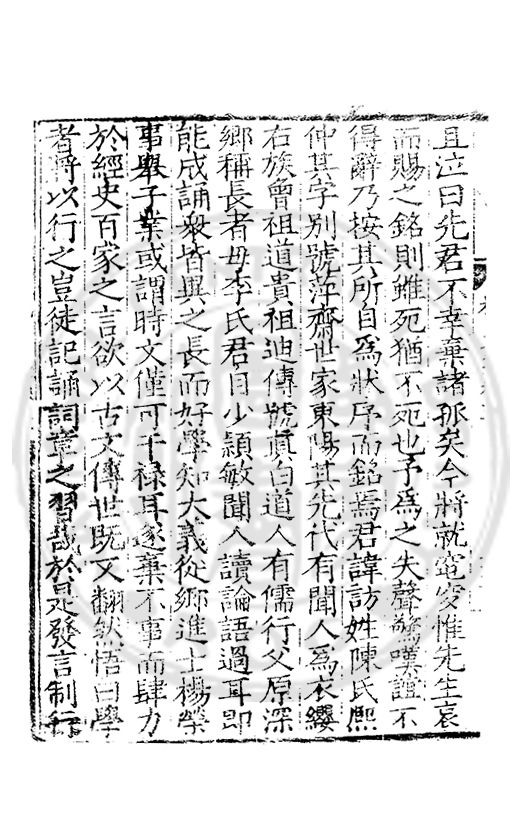 且泣曰先君不幸棄諸孤矣今將就窀穸惟先生哀
而賜之銘則雖死猶不死也予為之失聲驚嘆誼不
得辭乃按其所自為狀序而銘焉君諱訪姓陳氏熈
仲其字别號萍齋世家東陽其先代有聞人為衣纓
右族曾祖道貴祖迪傳號真白道人有儒行父原深
鄉稱長者母李氏君自少頴敏聞人讀論語過耳即
能成誦衆皆異之長而好學知大義從鄉進士楊榮
事舉子業或謂時文僅可干祿耳遂棄不事而肆力
於經史百家之言欲以古文傳世既又翻然悟曰學
者將以行之豈徒記誦詞章之習哉於是發言制行